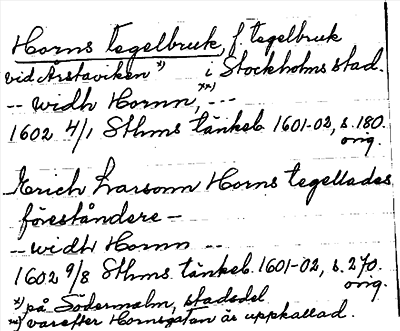 Horns tegelbruk, f. tegelbruk
vid Årstaviken x) i Stockholms stad.
-- widh Hornn, xx) ---
1602 4/1 Sthms tänkeb. 1601-02, s. 180.
orig.
Erich Larsonn Horns tegellades
föreståndere -
-- widh Hornn --
1602 9/8 Sthms tänkeb. 1601-02, s. 270.
orig.
x) på Södermalm, stadsdel
xx) varefter Hornsgatan är uppkallad.